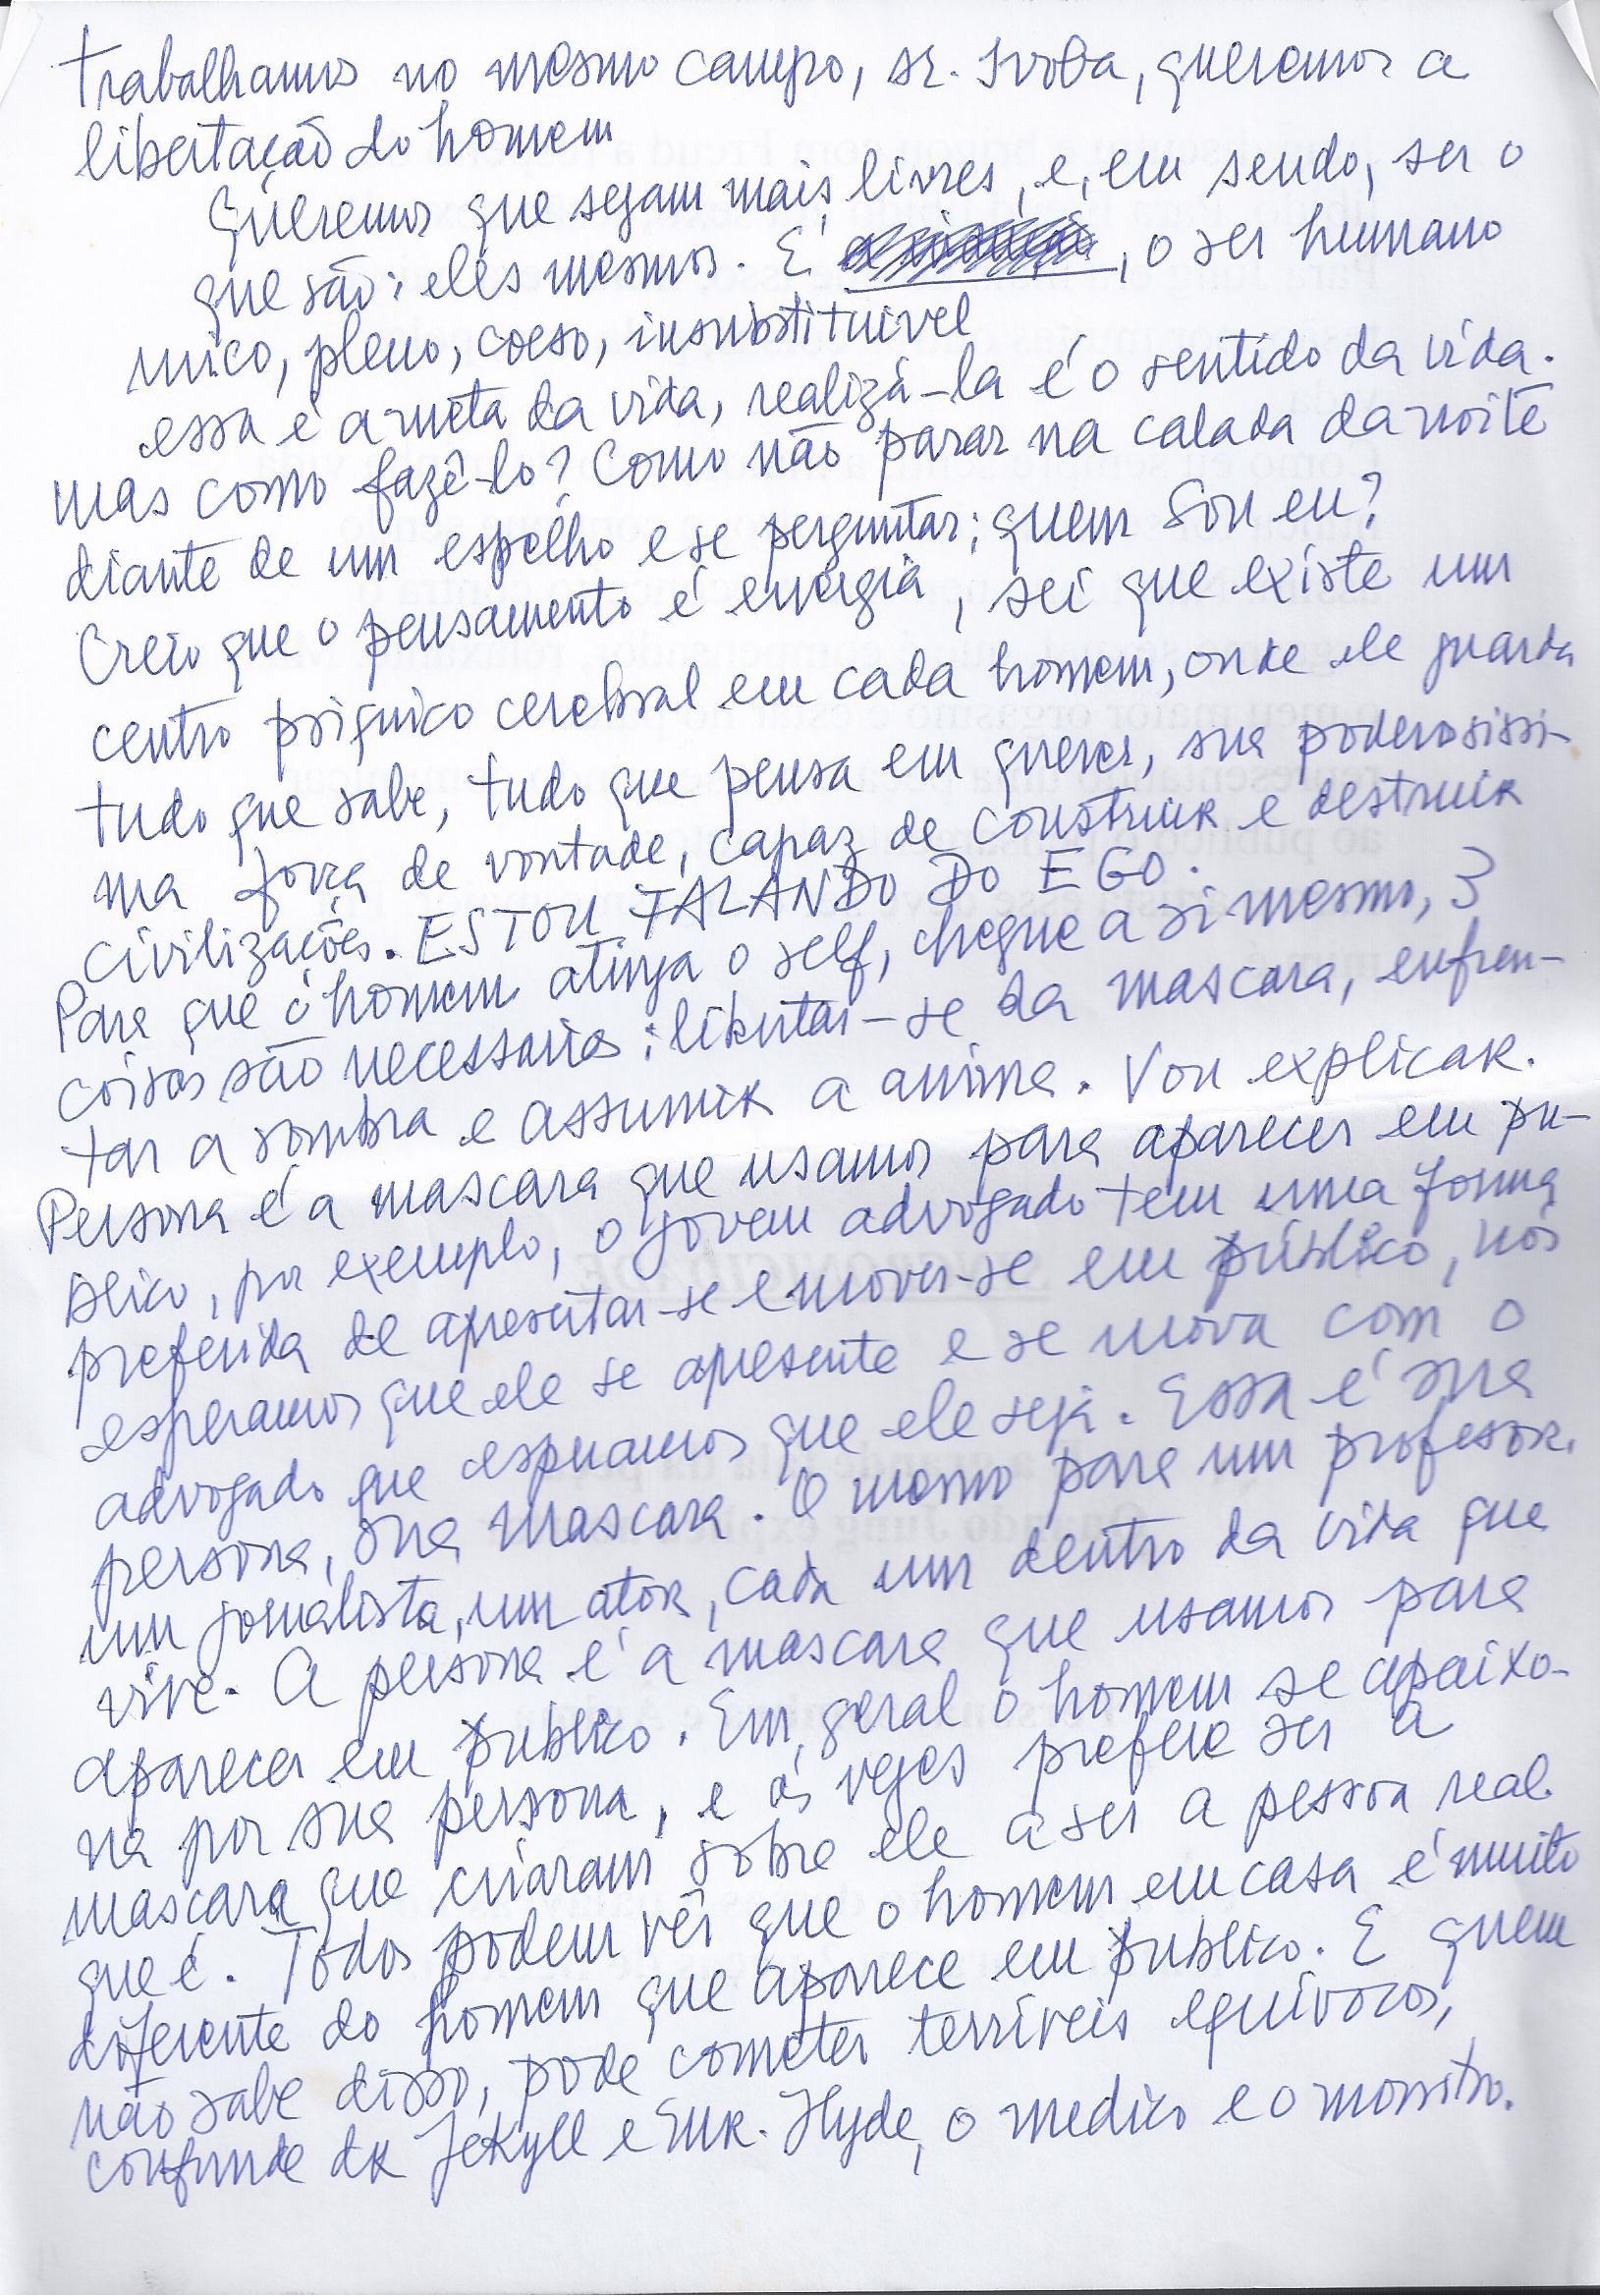 Trabalhamos no mesmo campo, sr. Svoba, queremos a
libertação do homem
Queremos que sejam mais livres, e, em sendo, ser o
que são: eles mesmos. E , o ser humano
unico, pleno, coeso, insubstituivel
essa é a meta da vida, realizá-la é o sentido da vida.
mas como fazê-lo? Como não parar na calada da noite
diante de um espelho e se perguntar: quem sou eu?
Creio que o pensamento é energia, sei que existe um
centro psiquico cerebral em cada homem, onde ele guarda
tudo que sabe, tudo que pensa em querer, sua poderosissi-
ma força de vontade, capaz de construir e destruir
civilizações. ESTOU FALANDO DO EGO.
Para que o homem atinja o self, chegue a si mesmo, 3
coisas são necessarias: libertar-se da mascara, enfren-
tar a sombra e assumir a anima. Vou explicar.
Persona é a mascara que usamos para aparecer em pu-
blico, por exemplo, o jovem advogado tem uma forma
preferida de apresentar-se e mover-se em público, nós
esperamos que ele se apresente e se mova com o
advogado que esperamos que ele seja. Essa é sua
persona, sua mascara. O mesmo para um professor.
um jornalista, um ator, cada um dentro da vida que
vive. A persona é a mascara que usamos para
aparecer em publico. Em geral o homem se apaixo-
na por sua persona, e ás vezes prefere ser a
mascara que criaram sobre ele a ser a pessoa real
que é. Todos podem vêr que o homem em casa é muito
diferente do homem que aparece em publico. E quem
não sabe disso, pode cometer terríveis equivocos,
confunde dr Jekyll e Mr. Hyde, o medico e o monstro.